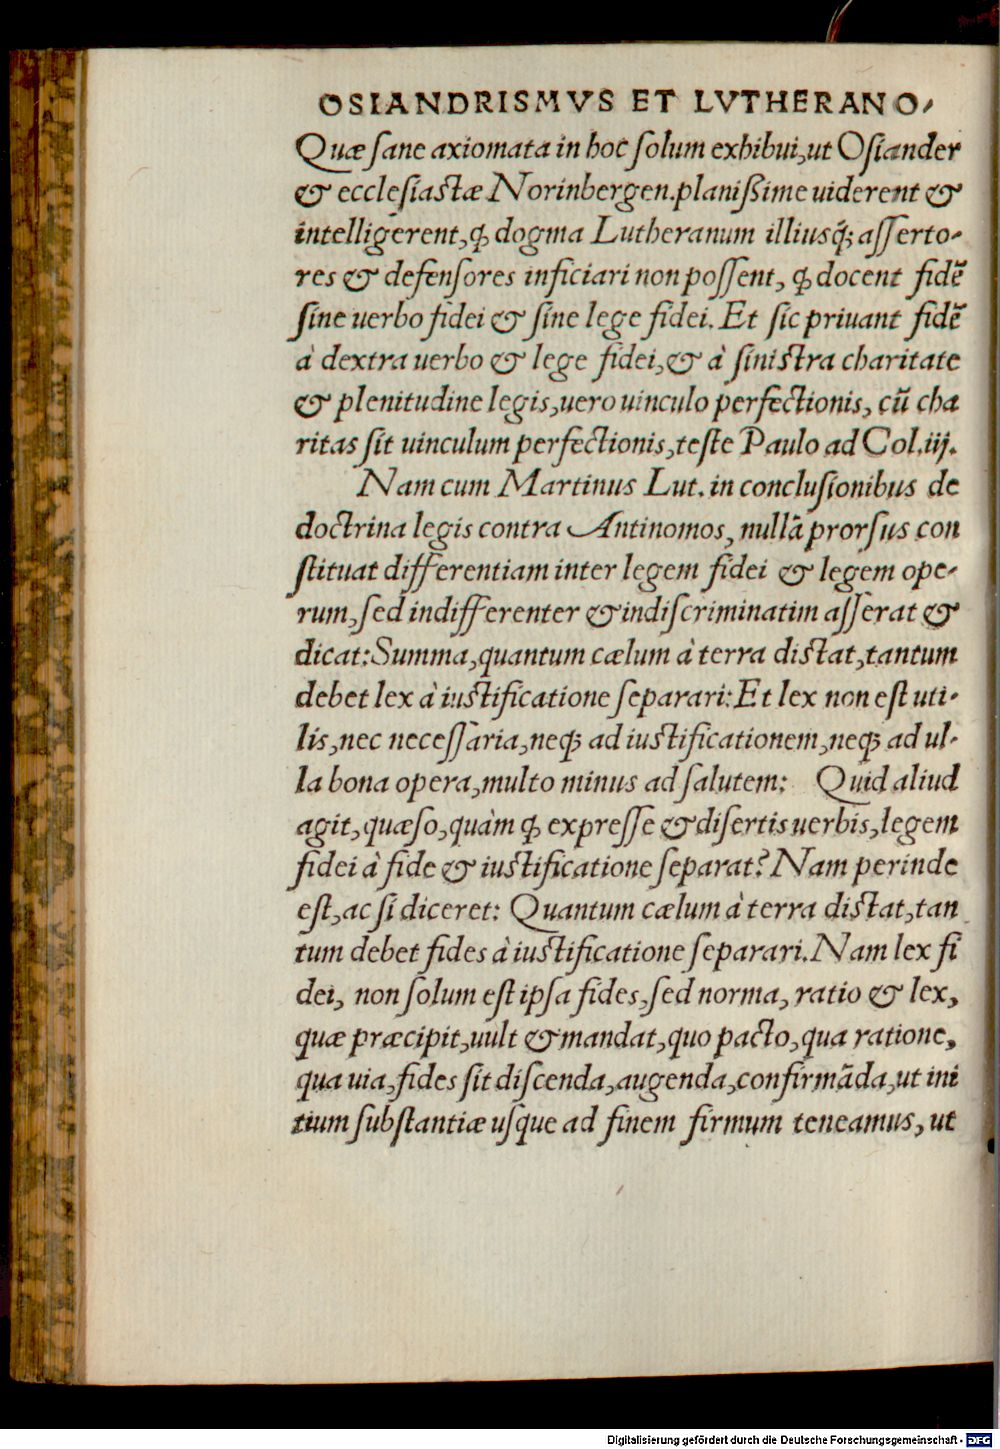 OSIANDRISMVS ET LVTHERANO-
Quæ sane axiomata in hoc solum exhibui, ut Osiander
& ecclesiastæ Norinbergen. planißime uiderent &
intelligerent, ꝙ dogma Lutheranum illiusq́; asserto-
res & defensores inficiari non possent, ꝙ docent fidẽ
sine uerbo fidei & sine lege fidei. Et sic priuant fidẽ
à dextra uerbo & lege fidei, & à sinistra charitate
& plenitudine legis, uero uinculo perfectionis, cũ cha
ritas sit uinculum perfectionis, teste Paulo ad Col. iij.
Nam cum Martinus Lut. in conclusionibus de
doctrina legis contra Antinomos, nullã prorsus con
stituat differentiam inter legem fidei & legem ope-
rum, sed indifferenter & indiscriminatim asserat &
dicat: Summa, quantum cælum à terra distat, tantum
debet lex à iustificatione separari: Et lex non est uti-
lis, nec necessaria, neq; ad iustificationem, neq; ad ul-
la bona opera, multo minus ad salutem: Quid aliud
agit, quæso, quàm ꝙ expresse & disertis uerbis, legem
fidei à fide & iustificatione separat? Nam perinde
est, ac si diceret: Quantum cælum à terra distat, tan
tum debet fides à iustificatione separari. Nam lex fi
dei, non solum est ipsa fides, sed norma, ratio & lex,
quæ præcipit, uult & mandat, quo pacto, qua ratione,
qua uia, fides sit discenda, augenda, confirmãda, ut ini
tium substantiæ usque ad finem firmum teneamus, ut
Digitalisierung gefördert durch die Deutsche Forschungsgemeinschaft - DFG